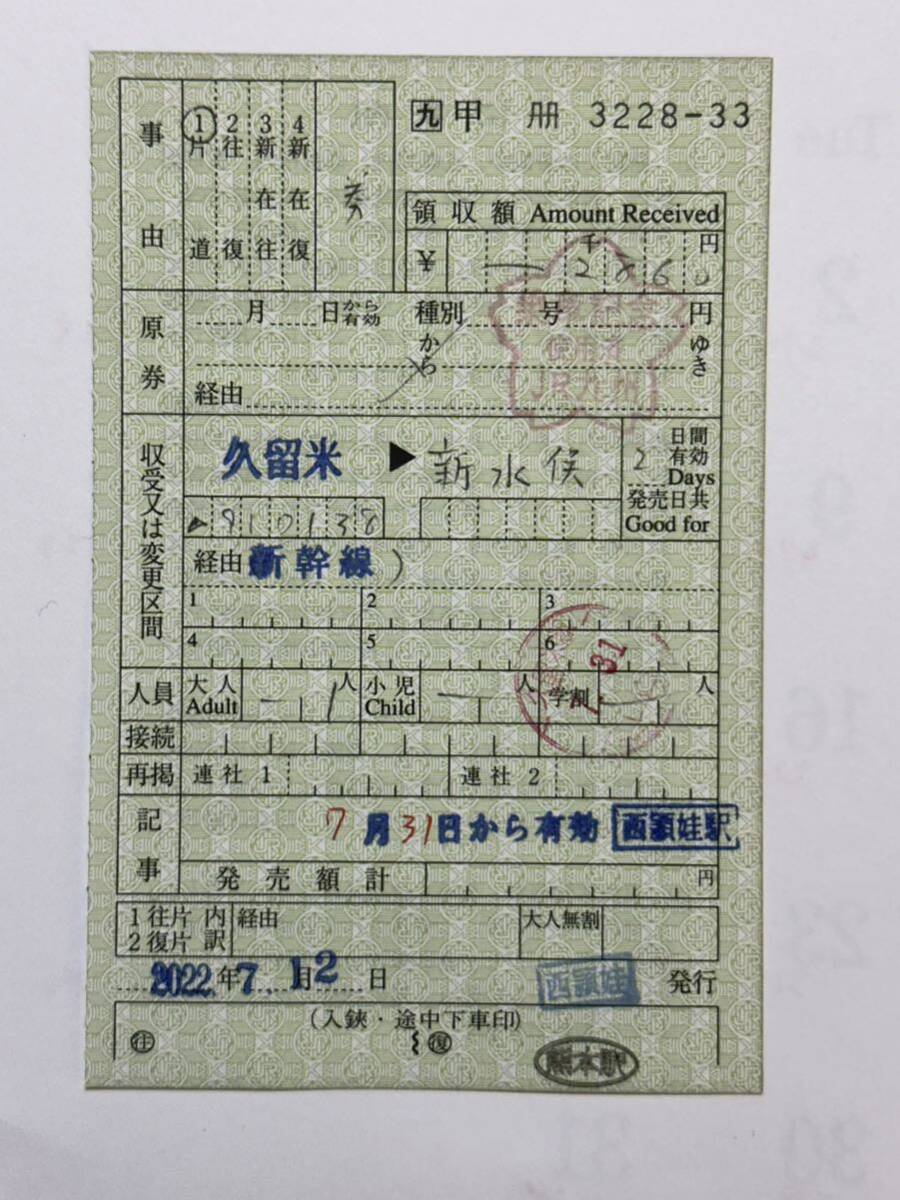 九 甲 冊 3228-33
事由
1片道
2往復
3新在往
4新在復
券
領収額 Amount Received
¥ 千 円
一 2860
乗車記念
使用済
JR九州
原券
月 日から有効 種別 号 円
から ゆき
経由
収受又は変更区間
久留米 ▶ 新水俣
2 日間有効
Days
発売日共
Good for
910138
経由 新幹線)
1 2 3
4 5 6
7.31
人員 大人 Adult 1 人 小児 Child 人 学割 人
接続
再掲 連社1 連社2
記事 7月31日から有効 西頴娃駅
発売額計 円
1往片 内訳 経由 大人無割
2復片
2022年7月12日 西頴娃 発行
(入鋏・途中下車印)
往 復
熊本駅